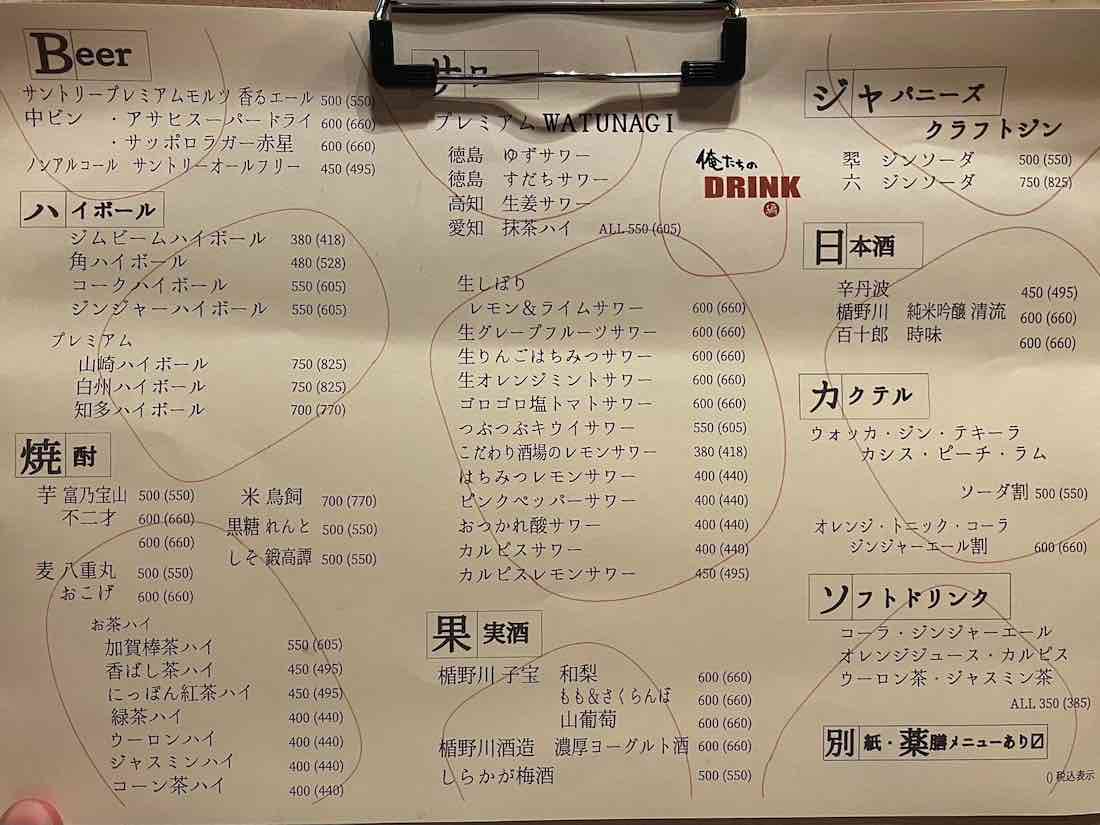 Beer
サントリープレミアムモルツ 香るエール 500 (550)
中ビン ・アサヒスーパードライ 600 (660)
・サッポロラガー赤星 600 (660)
ノンアルコール サントリーオールフリー 450 (495)
ハイボール
ジムビームハイボール 380 (418)
角ハイボール 480 (528)
コークハイボール 550 (605)
ジンジャーハイボール 550 (605)
プレミアム
山崎ハイボール 750 (825)
白州ハイボール 750 (825)
知多ハイボール 700 (770)
焼酎
芋 富乃宝山 500 (550)
不二才 600 (660)
600 (660)
麦 八重丸 500 (550)
おこげ 600 (660)
米 鳥飼 700 (770)
黒糖 れんと 500 (550)
しそ 鍛高譚 500 (550)
お茶ハイ
加賀棒茶ハイ 550 (605)
香ばし茶ハイ 450 (495)
にっぽん紅茶ハイ 450 (495)
緑茶ハイ 400 (440)
ウーロンハイ 400 (440)
ジャスミンハイ 400 (440)
コーン茶ハイ 400 (440)
サワー
プレミアム WATUNAGI
徳島 ゆずサワー
徳島 すだちサワー
高知 生姜サワー
愛知 抹茶ハイ ALL 550 (605)
生しぼり
レモン&ライムサワー 600 (660)
生グレープフルーツサワー 600 (660)
生りんごはちみつサワー 600 (660)
生オレンジミントサワー 600 (660)
ゴロゴロ塩トマトサワー 600 (660)
つぶつぶキウイサワー 550 (605)
こだわり酒場のレモンサワー 380 (418)
はちみつレモンサワー 400 (440)
ピンクペッパーサワー 400 (440)
おつかれ酸サワー 400 (440)
カルピスサワー 400 (440)
カルピスレモンサワー 450 (495)
果実酒
楯野川 子宝 和梨 600 (660)
もも&さくらんぼ 600 (660)
山葡萄 600 (660)
楯野川酒造 濃厚ヨーグルト酒 600 (660)
しらかが梅酒 500 (550)
俺たちの
DRINK
編
ジャパニーズ
クラフトジン
翆 ジンソーダ 500 (550)
六 ジンソーダ 750 (825)
日本酒
辛丹波 450 (495)
楯野川 純米吟醸 清流 600 (660)
百十郎 時味 600 (660)
カクテル
ウォッカ・ジン・テキーラ
カシス・ピーチ・ラム
ソーダ割 500 (550)
オレンジ・トニック・コーラ
ジンジャーエール割 600 (660)
ソフトドリンク
コーラ・ジンジャーエール
オレンジジュース・カルピス
ウーロン茶・ジャスミン茶
ALL 350 (385)
別紙・薬膳メニューあり〼
() 税込表示